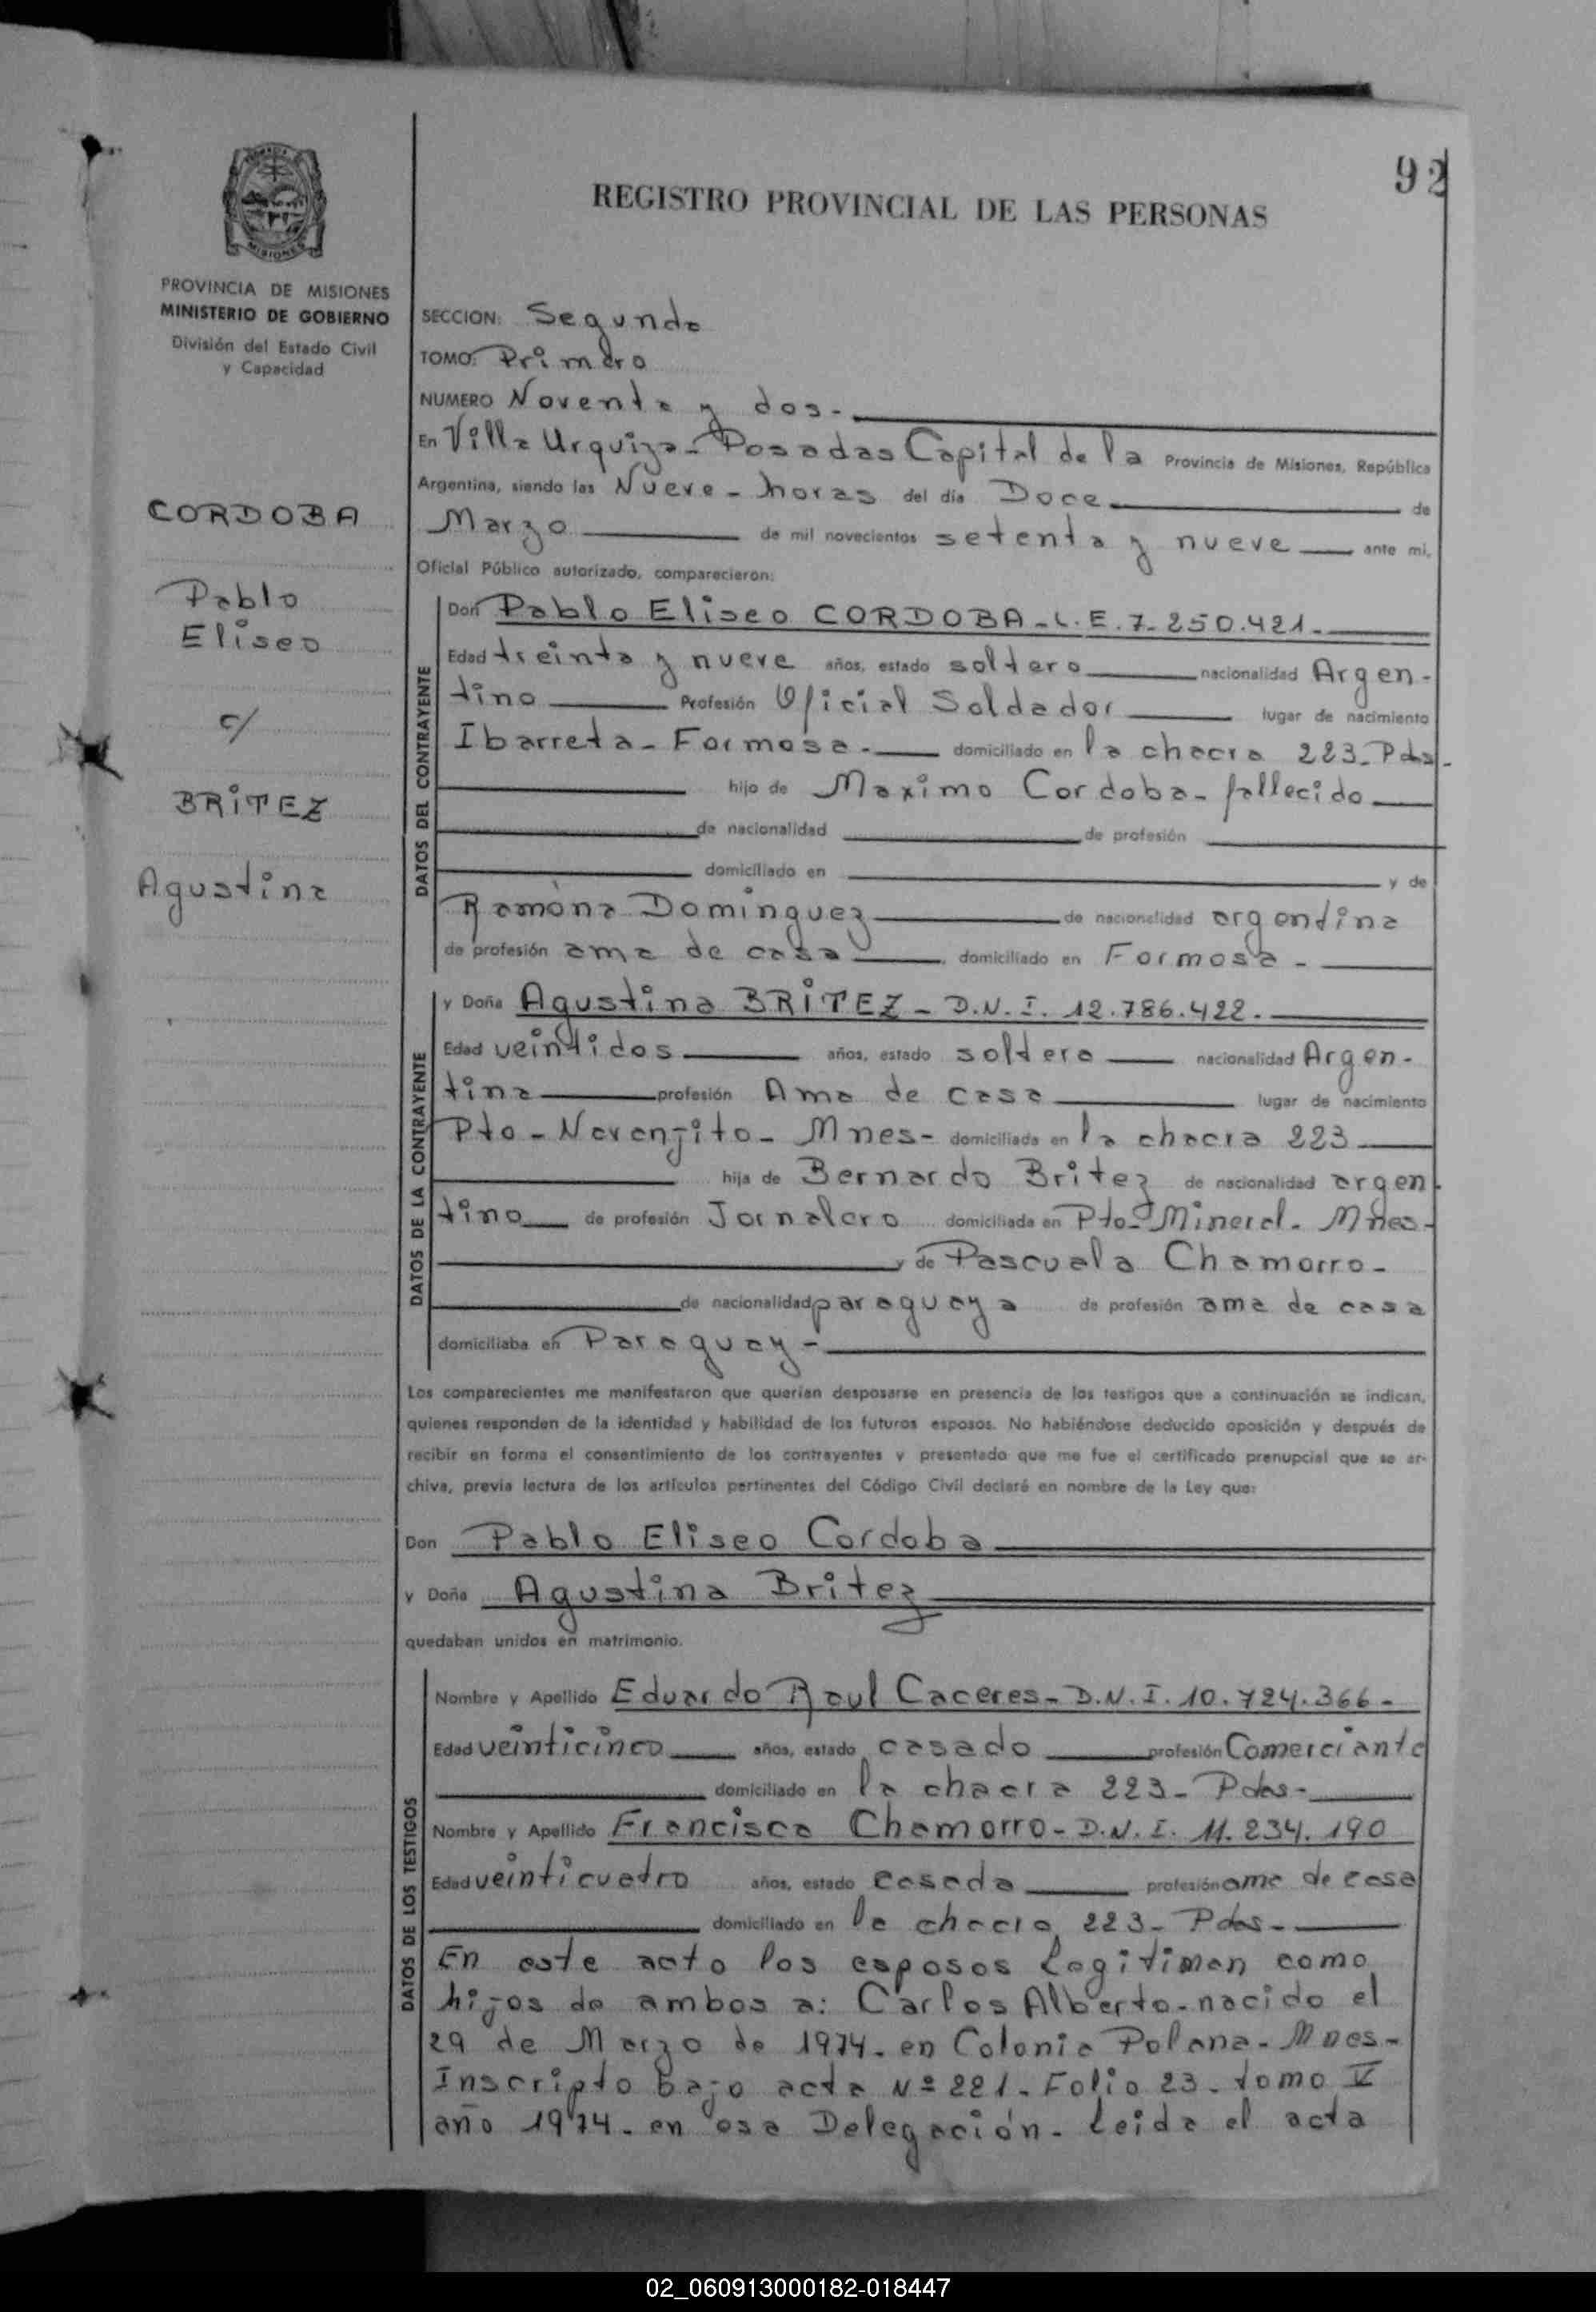 92
REGISTRO PROVINCIAL DE LAS PERSONAS
MISIONES
PROVINCIA DE MISIONES
MINISTERIO DE GOBIERNO
División del Estado Civil
y Capacidad
CORDOBA
Pablo
Eliseo
c/
BRITEZ
Agustina
SECCION: Segunda
TOMO: Primero
NUMERO Noventa y dos-
En Villa Urquiza- Posadas Capital de la Provincia de Misiones, República
Argentina, siendo las Nueve - horas del día Doce de
Marzo de mil novecientos setenta y nueve ante mi,
Oficial Público autorizado, comparecieron:
DATOS DEL CONTRAYENTE
Don Pablo Eliseo CORDOBA - L.E. 7.250.421.
Edad treinta y nueve años, estado soltero nacionalidad Argen-
tino Profesión Oficial Soldador lugar de nacimiento
Ibarreta - Formosa - domiciliado en la chacra 223- Pdas-
hijo de Maximo Cordoba - fallecido
de nacionalidad de profesión
domiciliado en y de
Ramona Dominguez de nacionalidad argentina
de profesión ama de casa, domiciliado en Formosa -
DATOS DE LA CONTRAYENTE
y Doña Agustina BRITEZ - D.N.I. 12.786.422.
Edad veintidos años, estado soltera nacionalidad Argen-
tina profesión Ama de casa lugar de nacimiento
Pto - Naranjito - Mnes - domiciliada en la chacra 223
hija de Bernardo Britez de nacionalidad argen
tino de profesión Jornalero domiciliada en Pto- Mineral. Mnes-
y de Pascuala Chamorro-
de nacionalidad paraguaya de profesión ama de casa
domiciliaba en Paraguay -
Los comparecientes me manifestaron que querían desposarse en presencia de los testigos que a continuación se indican,
quienes responden de la identidad y habilidad de los futuros esposos. No habiéndose deducido oposición y después de
recibir en forma el consentimiento de los contrayentes y presentado que me fue el certificado prenupcial que se ar-
chiva, previa lectura de los artículos pertinentes del Código Civil declaré en nombre de la Ley que:
Don Pablo Eliseo Cordoba
y Doña Agustina Britez
quedaban unidos en matrimonio.
DATOS DE LOS TESTIGOS
Nombre y Apellido Eduardo Raul Caceres - D.N.I. 10.724.366-
Edad veinticinco años, estado casado profesión Comerciante
domiciliado en la chacra 223- Pdas-
Nombre y Apellido Francisca Chamorro - D.N.I. 11.234.190
Edad veinticuatro años, estado casada profesión ama de casa
domiciliado en la chacra 223- Pdas-
En este acto los esposos legitiman como
hijos de ambos a: Carlos Alberto - nacido el
29 de Marzo de 1974. en Colonia Polana - Mnes-
Inscripto bajo acta Nº 221. Folio 23. tomo V
año 1974. en esa Delegación. Leida el acta
02_060913000182-018447